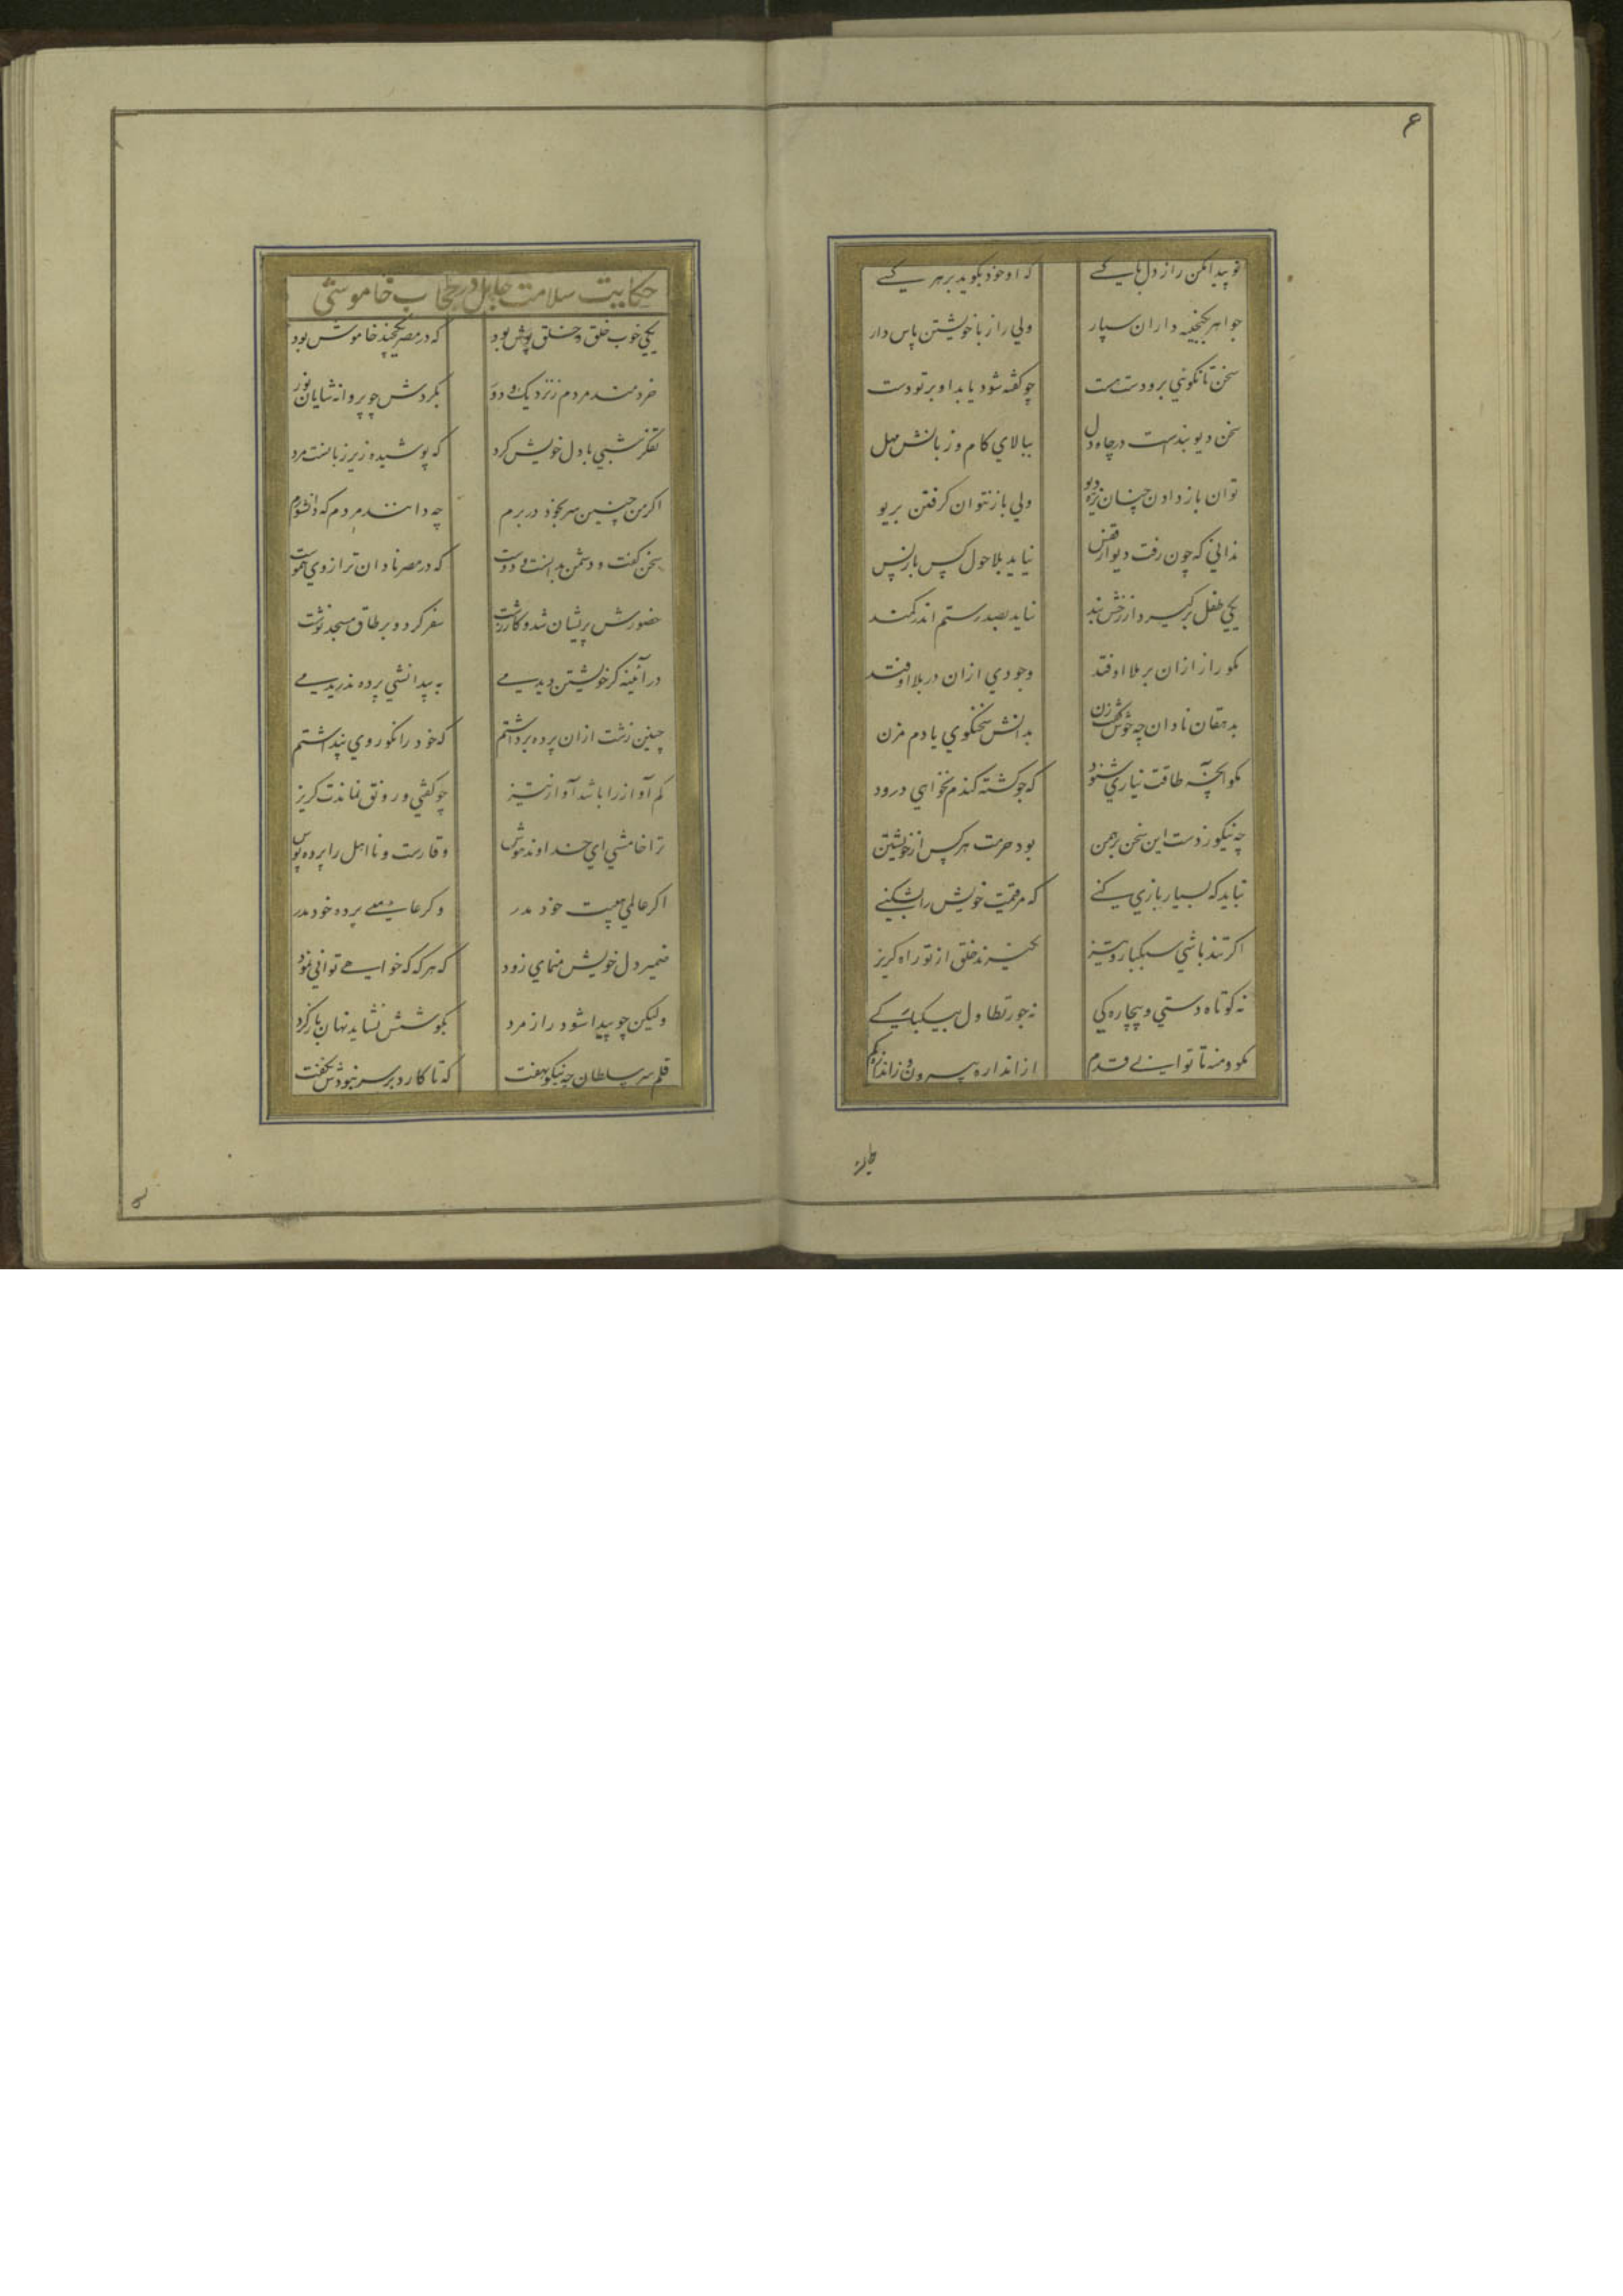 ۶
تو پیدا مکن راز دل با کسے که او خود بکوید بر هر کسے
جواهر بکنجینه داران سپار ولي راز با خویشتن پاس دار
سخن تا نکوئي برو دست هست چو کفته شود یابد او بر تو دست
سخن دیو بندست در چاه دل ببالاي کام و زبانش مهل
توان باز دادن چنان نره دیو ولي باز نتوان کرفتن بریو
نداني که چون رفت دیو از قفس نیاید بلاحول کس باز پس
یکي طفل برکیرد از رخش بند نیاید بصد رستم اندر کمند
مکو راز ازان بر ملا اوفتد وجودي ازان در بلا اوفتد
بدهقان نادان چه خوش کفت زن بدانش سخنکوي یا دم مزن
مکو آنچه طاقت نیاري شنود که جو کشته کندم نخواهي درود
چه نیکو زدست این سخن برهمن بود حرمت هر کس از خویشتن
نباید که بسیار بازي کنے که مر قیمت خویش را بشکنے
اکر تند باشي سبکبار و تیز بخیزند خلق از تو راه کریز
نه کوتاه دستي و بیچاره کي نه جور تطاول بیکبارکے
مکو و منه تا تواني قدم از اندازه بیرون و ز اندازه کم
حکایت سلامت جاهل در حجاب خاموشي
یکي خوب خلق و خلق پوش بود که در مصر یکچند خاموش بود
خردمند مردم ز نزدیک و دور بکردش چو پروانه شایان نور
تفکر شبي با دل خویش کرد که پوشیده زیر زبانست مرد
اکر من چنین سر بخود در برم چه دانند مردم که دانشورم
سخن کفت و دشمن بدانست و دوست که در مصر نادان تر از وي هموست
حضورش پریشان شد و کار زشت سفر کرد و بر طاق مسجد نوشت
در آئینه کر خویشتن دیدمے به بیدانشي پرده ندریدمے
چنین زشت ازان پرده برداشتم که خود را نکو روي پنداشتم
کم آواز را باشد آواز تیز چو کفتي و رونق نماندت کریز
ترا خامشي اي خداوند هوش وقارست و نااهل را پرده پوش
اکر عالمي هیبت خود مدر وکر عامے پرده خود مدر
ضمیر دل خویش منماي زود که هرکه که خواهے تواني نمود
ولیکن چو پیدا شود راز مرد بکوشش نشاید نهان باز کرد
قلم سر سلطان چه نیکو نهفت که تا کارد بر سر نبودش نکفت